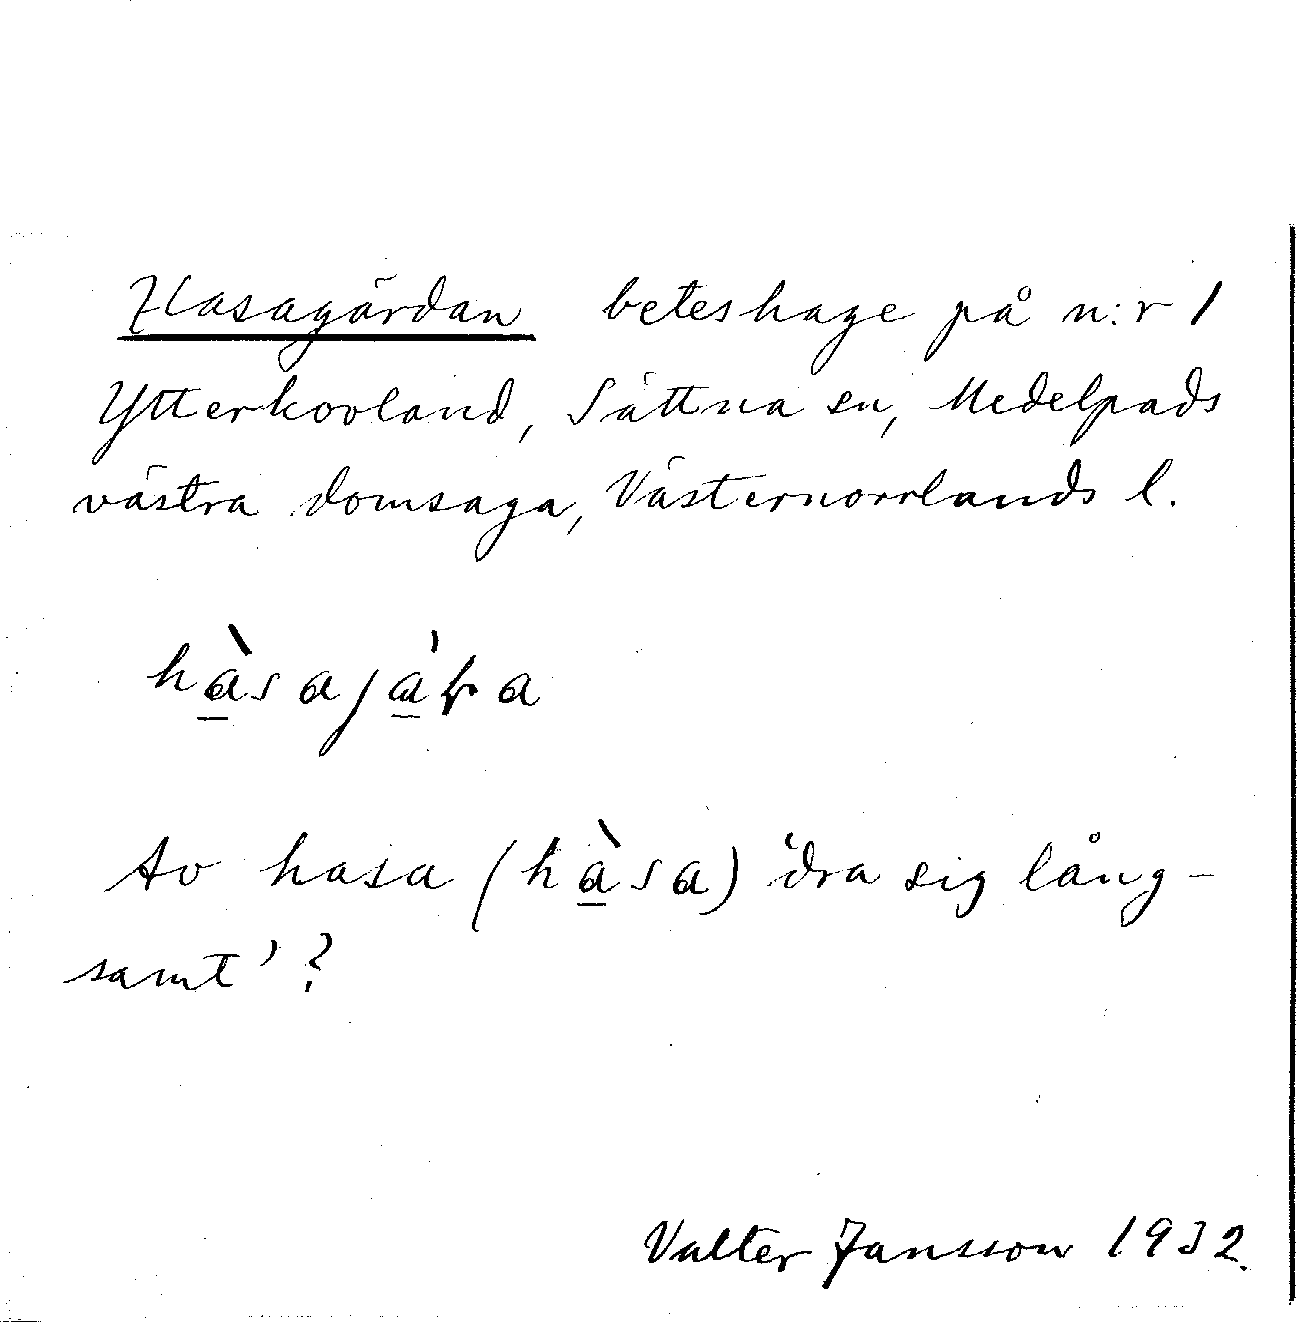 Hasagärdan beteshage på n:r 1
Ytterkovland, Sättna sn, Medelpads
västra domsaga, Västernorrlands l.
hàsajàɽa
Av hasa (hàsa) 'dra sig lång-
samt'?
Valter Jansson 1932.